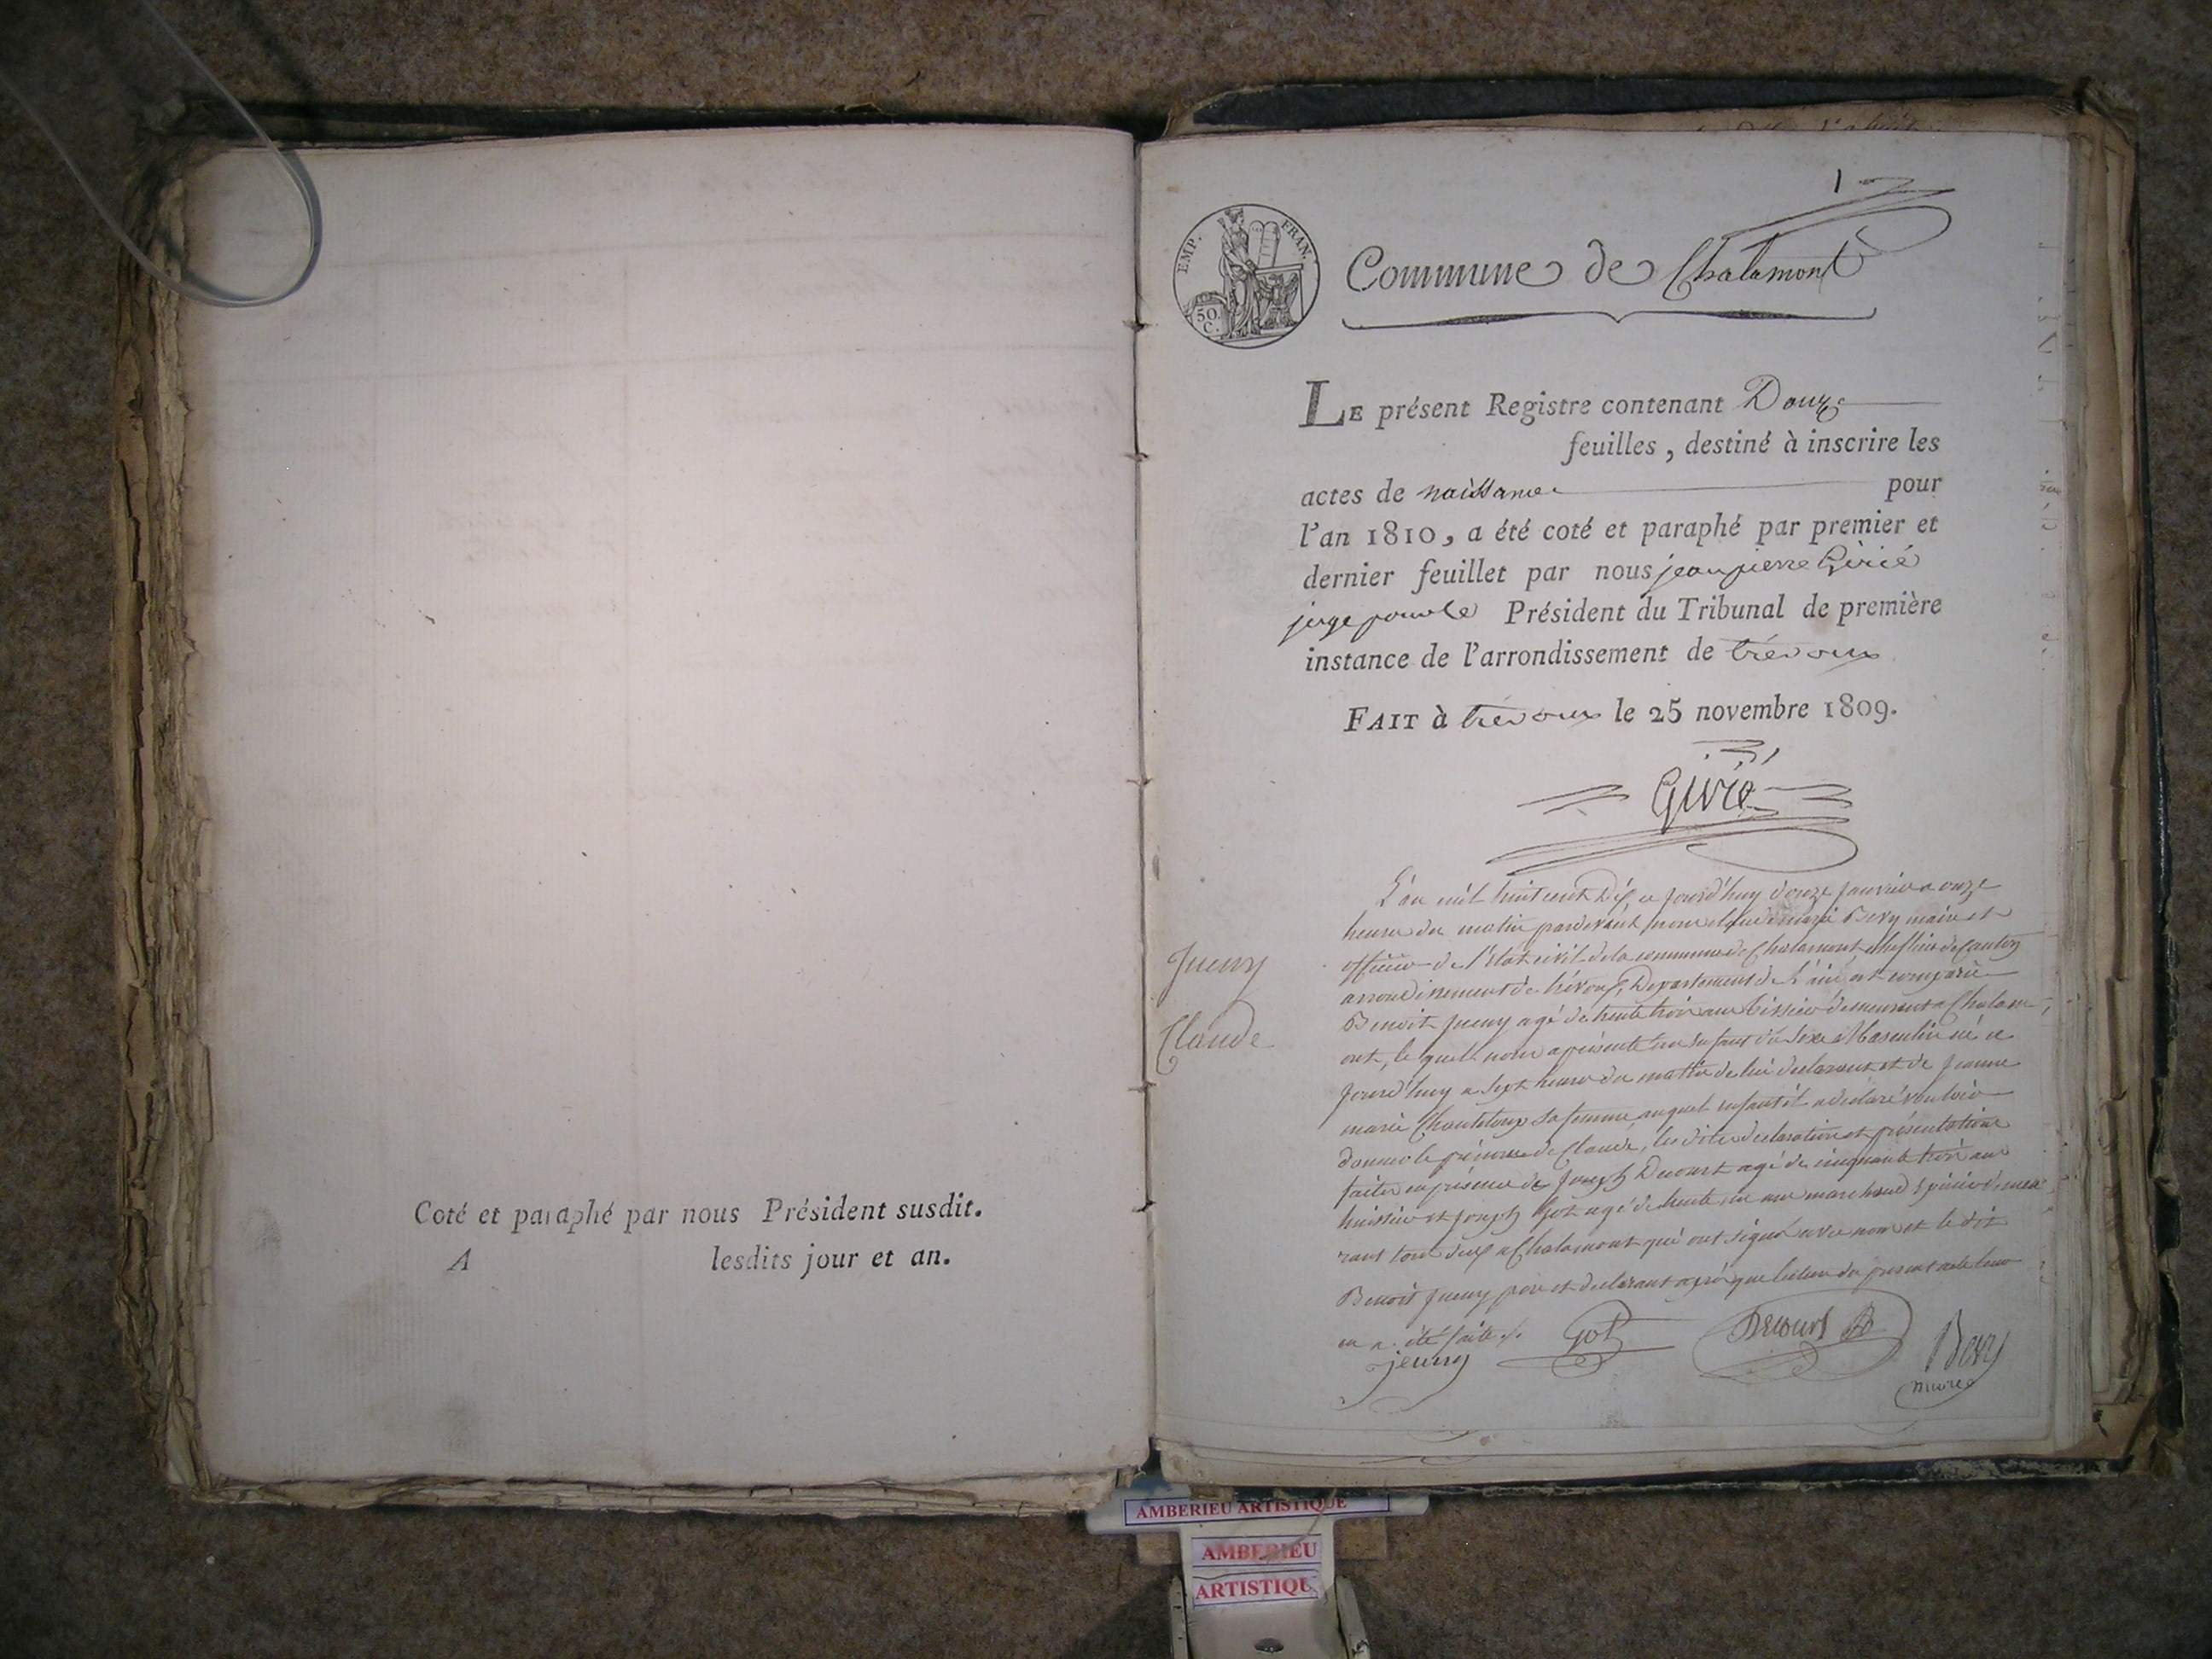 Coté et paraphé par nous Président susdit.
A lesdits jour et an.
1
EMP. FRAN.
50. C.
Commune de Chalamont
LE présent Registre contenant Douze
feuilles, destiné à inscrire les
actes de naissance pour
l'an 1810, a été coté et paraphé par premier et
dernier feuillet par nous jean pierre Girié
juge pour le Président du Tribunal de première
instance de l'arrondissement de trévoux
FAIT à trévoux le 25 novembre 1809.
Girié
Jueny
Claude
L'an mil huit cent Dix, ce jourd'huy douze janvier a onze
heures du matin pardevant nous Bevy maire et
officier de l'état civil de la commune de Chalamont cheflieu de Canton
arrondissement de trévoux, Departement de l'ain est comparu
Benoit Jueny agé de trente trois ans demeurant a Chalam-
ont, le quel nous a présenté un enfant du sexe Masculin né ce
jourd'huy a sept heures du matin de lui declarant et de jeanne
marie sa femme, auquel enfant il a déclaré vouloir
donner le prénom de Claude, les dites declaration et présentation
faites en présence de Joseph Decourt agé de cinquante trois ans
huissier et Joseph Got agé de trente ans marchand épicier demeu
rant tous deux a Chalamont qui ont signé avec nous et le dit
Benoit Jueny père et declarant après que lecture du present acte leur
en a été faite.
jeuny Got Decourt Bevy
maire
AMBERIEU ARTISTIQUE
AMBERIEU
ARTISTIQU